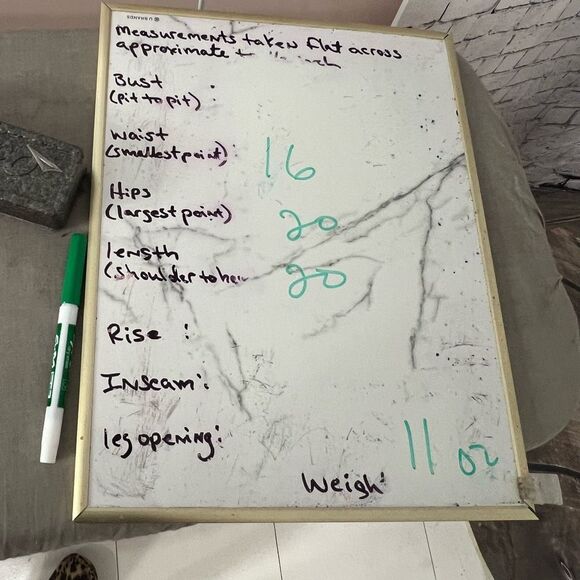 U BRANDS
measurements taken flat across
approximate
Bust
(pit to pit)
waist
(smallest point): 16
Hips
(largest point) 20
length
(shoulder to 20
Rise :
Inseam:
leg opening:
11 oz
Weigh